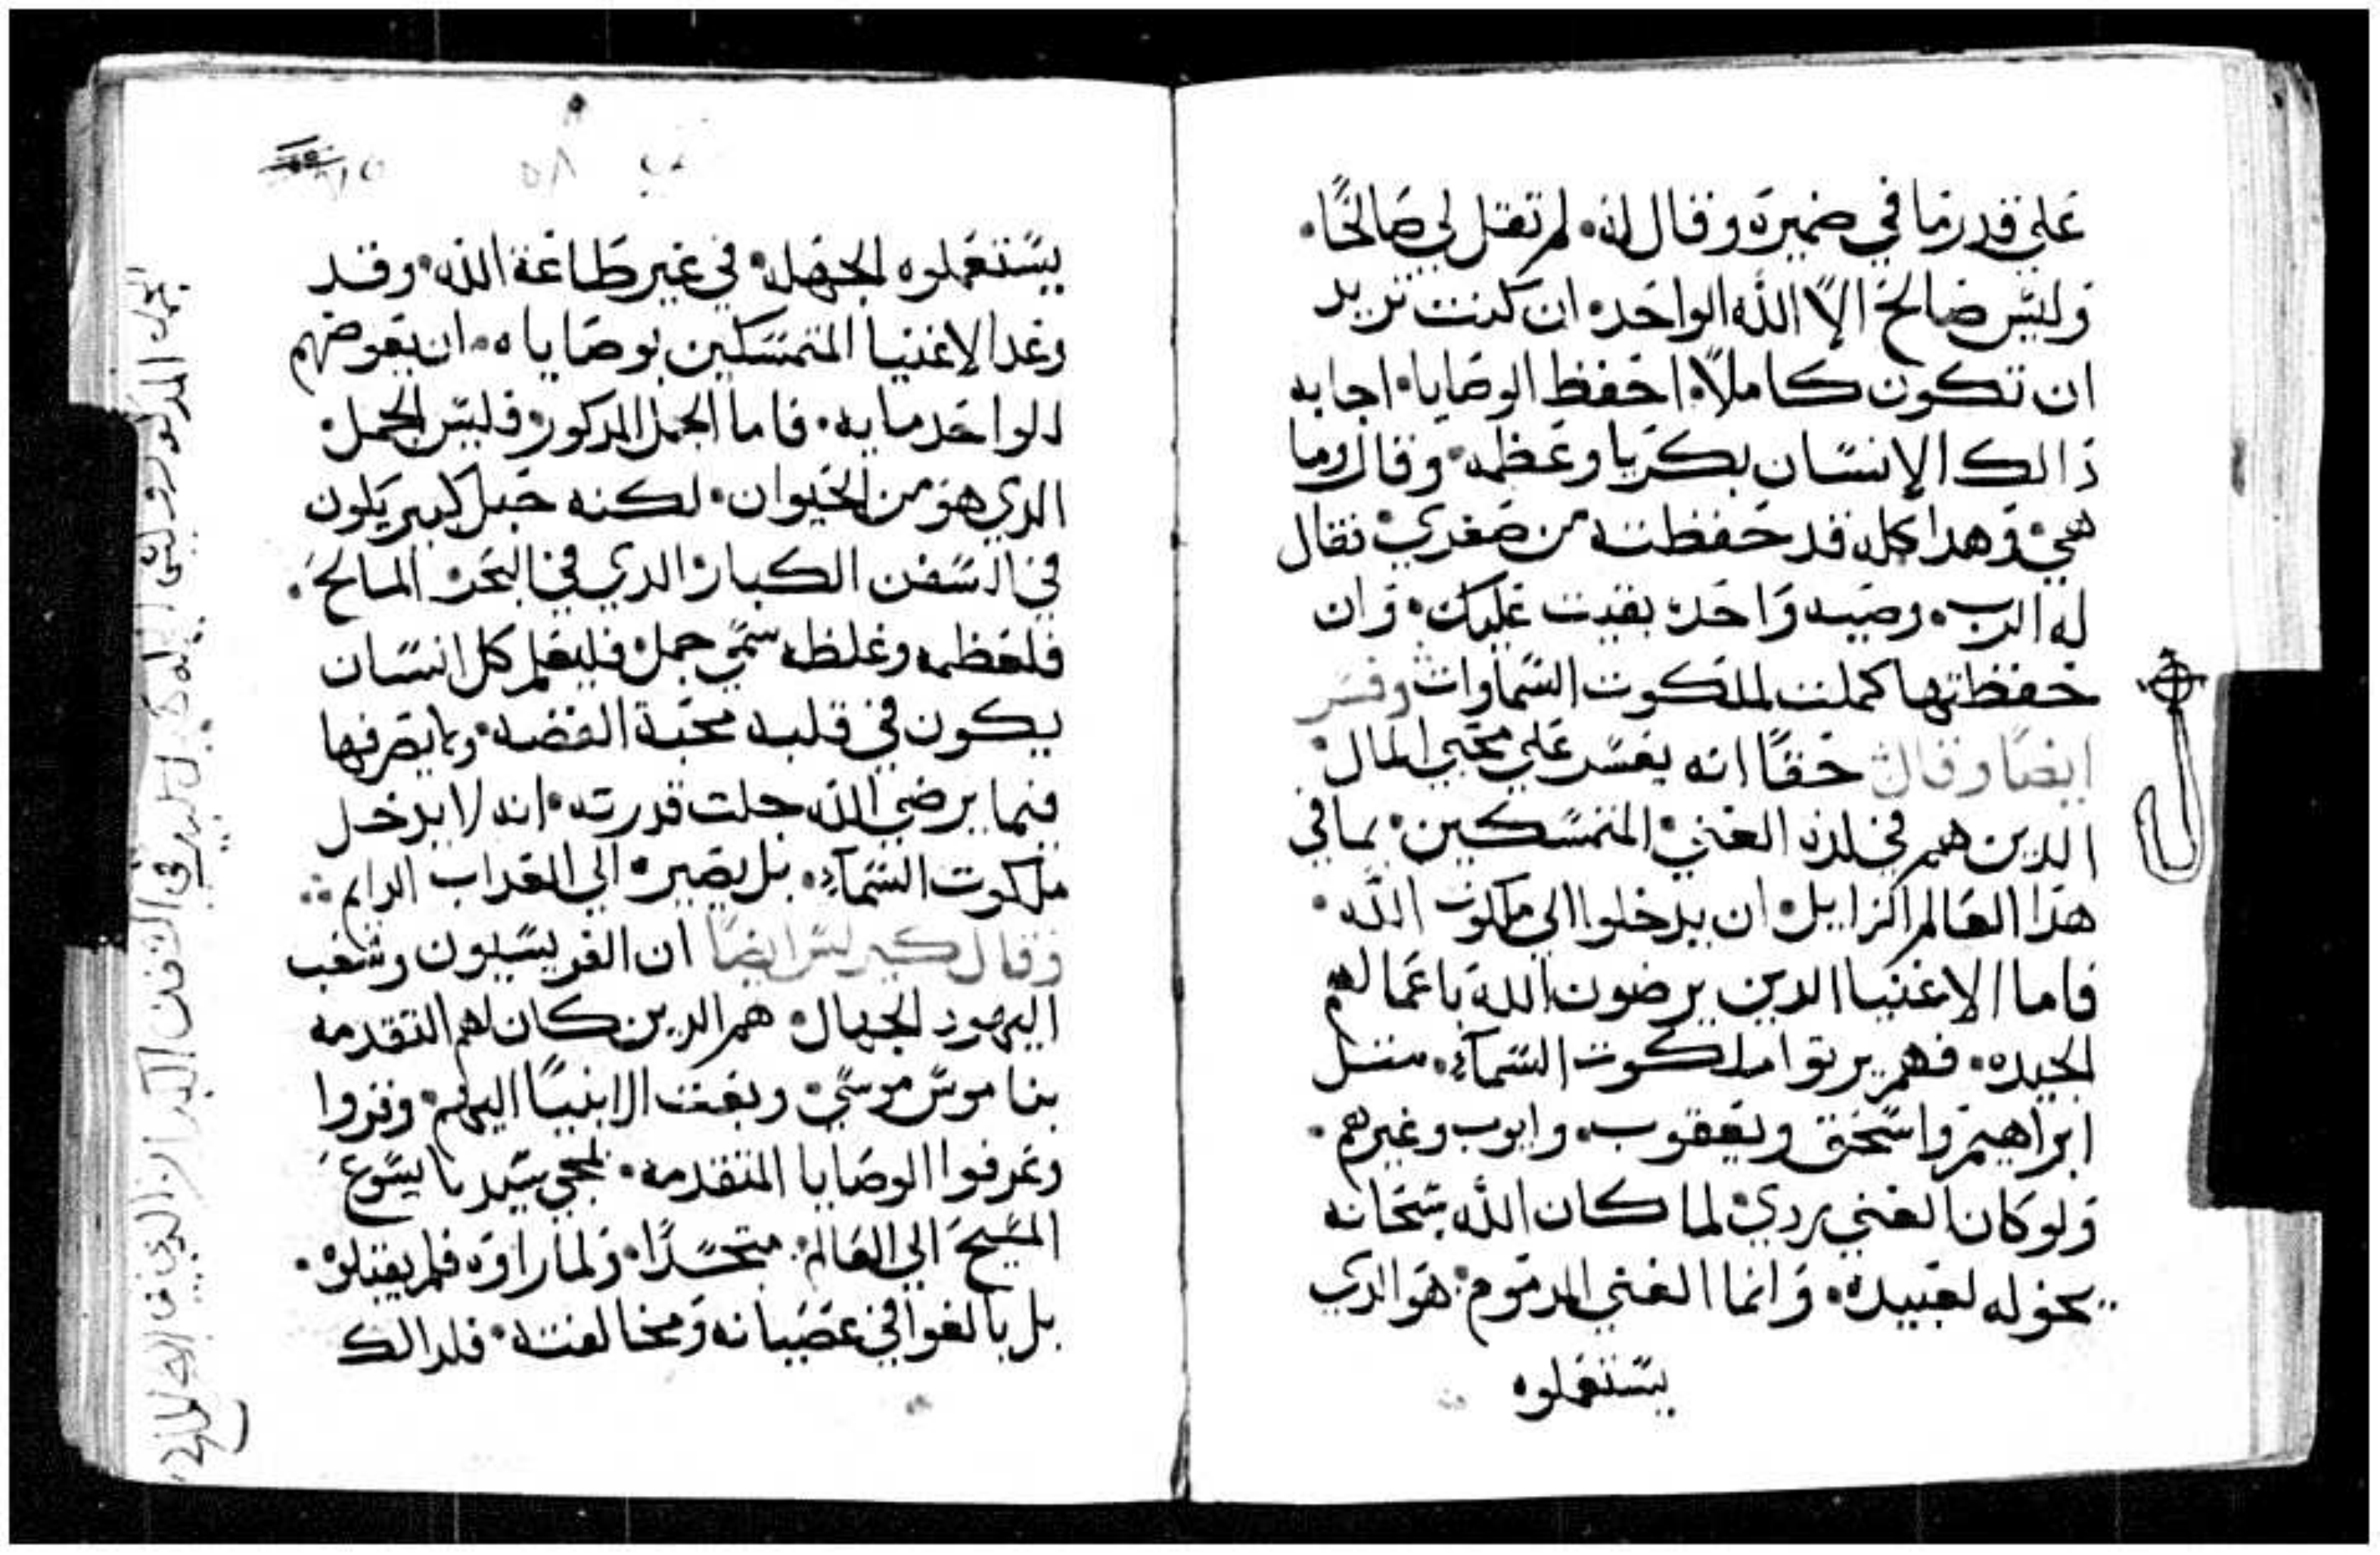 علي قدر ما في ضميره وقال له. لم تقل لي صالحًا.
وليس صالح الاّ الله الواحد. ان كنت تريد
ان تكون كاملاً. احفظ الوصايا. اجابه
ذالك الانسان بكبريا وعظمه. وقال وما
هي وهدا كله قد حفظته من صغري فقال
له الرب. وصيه واحده بقيت عليك. وان
حفظتها كملت لملكوت السماوات وفسر
ايضًا وقال حقًا انه يعسر علي محبي المال
الدين هم في لذة الغني المتمسكين بما في
هذا العالم الزايل ان يدخلوا الي ملكوت الله.
فاما الاغنيا الدين يرضون الله باعمالهم
الجيده. فهم يرتوا ملكوت السمآء. متل
ابراهيم واسحق ويعقوب. وايوب وغيرهم.
ولو كان الغني ردي لما كان الله سبحانه
يخوله لعبيده. وانما الغني المدموم هو الدي
يستعملوه
يستعملوه الجهله. في غير طاعة الله. وقد
وعد الاغنيا المتمسكين بوصاياه. ان يعوضهم
الواحد مايه. فاما الجمل المدكور فليس الجمل
الدي هو من الحيوان. لكنه حبل كبير يكون
في السفن الكبار الدي في البحر المالح.
فلعظمه وغلظه سمي جمل فليعلم كل انسان
يكون في قلبه محبة الفضه ولا يصرفها
فيما يرضي الله جلت قدرته. انه لا يدخل
ملكوت السمآء. بل يصير الي العداب الدايم
وقال كيرلس ايضًا ان الفريسيون وشعب
اليهود الجهال. هم الدين كان لهم التقدمه
بناموس موسي وبعتت الانبيا اليهم. وقروا
وعرفوا الوصايا المتقدمه. لمجي سيدنا يسوع
المسيح الي العالم. متجسدًا. ولما راوه فلم يقبلوه.
بل بالغوا في عصيانه ومخالفته. فلدالك
الجمل المدكور وليس
في السفن الكبار الدي في البحر المالح
٥٨